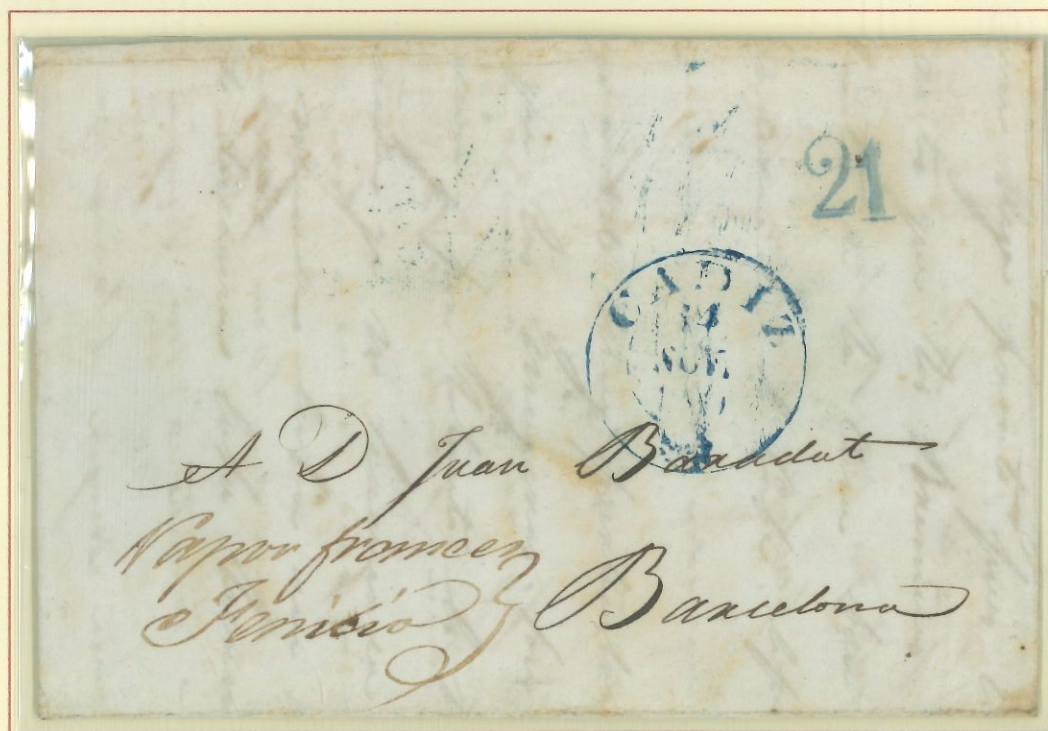 21
CADIZ
NOV.
A D Juan
Vapor frances
Fenicio
Barcelona